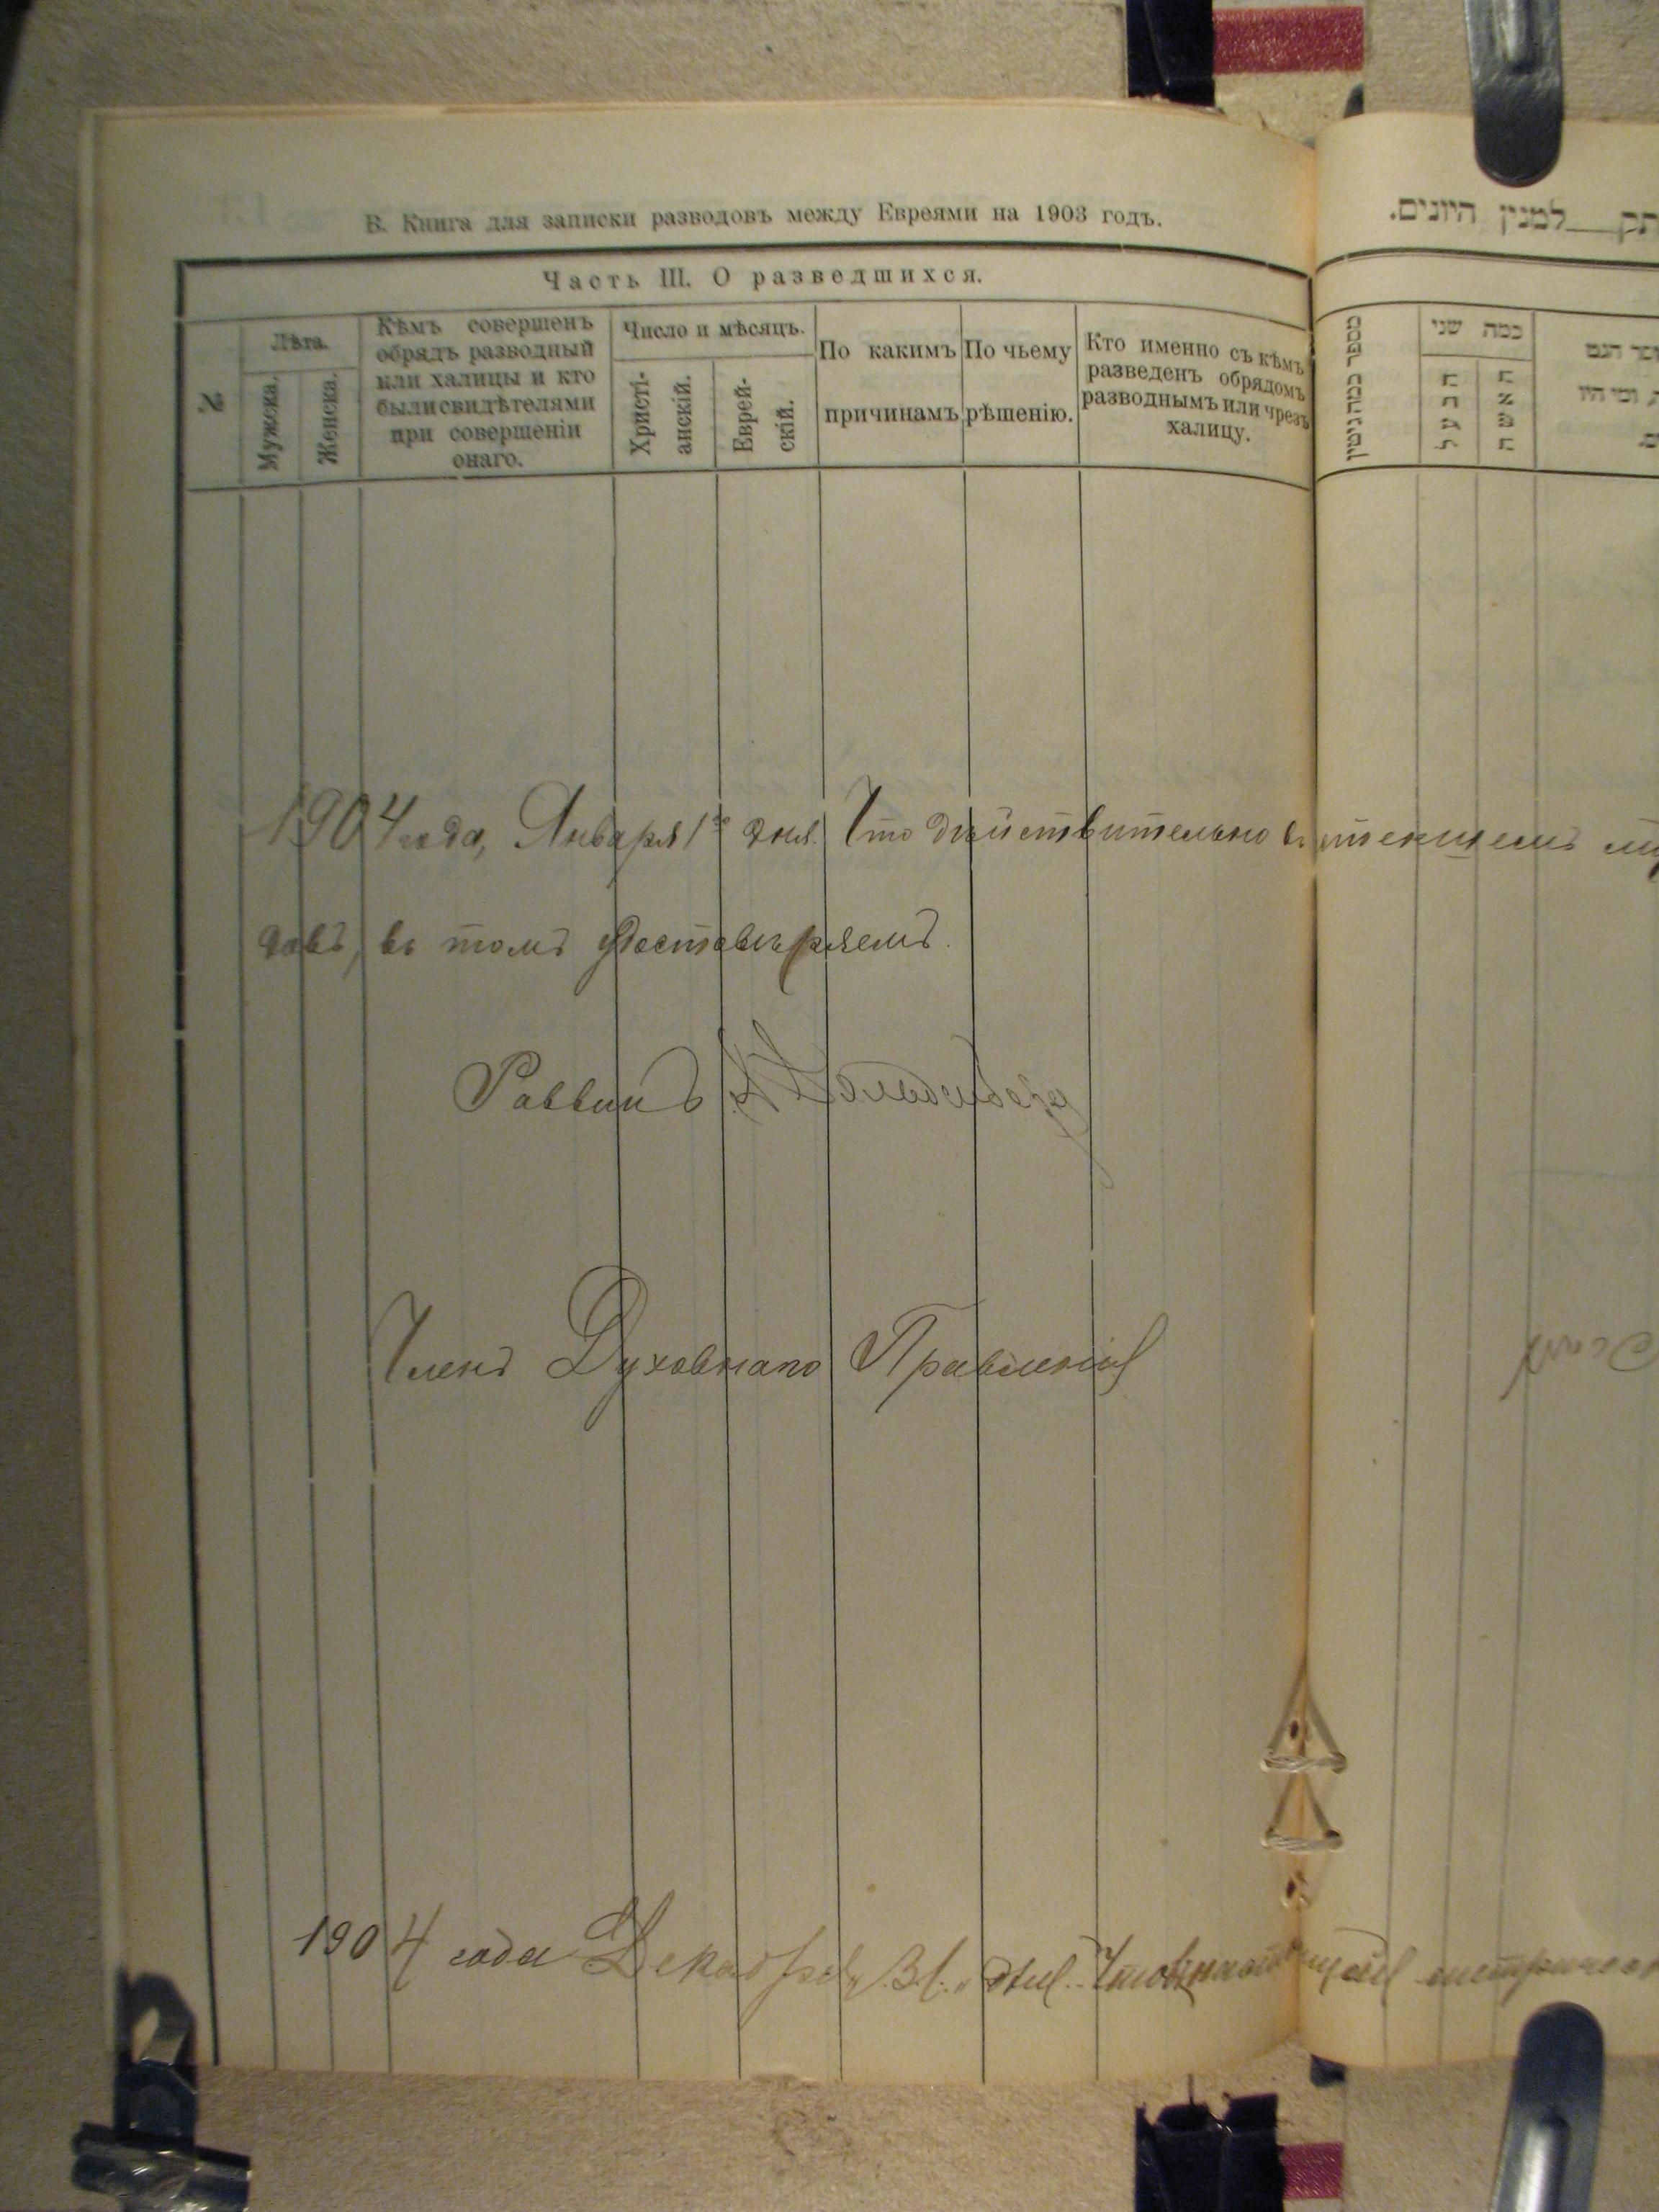 В. Книга для записки разводовъ между Евреями на 1903 годъ.
Часть III. О разведшихся.
№
Лѣта.
Мужска.
Женска.
Кѣмъ совершенъ
обрядъ разводный
или халицы и кто
были свидѣтелями
при совершеніи
онаго.
Число и мѣсяцъ.
Христі-
анскій.
Еврей-
скій.
По какимъ
причинамъ
По чьему
рѣшенію.
Кто именно съ кѣмъ
разведенъ обрядомъ
разводнымъ или чрезъ
халицу.
1904 года, Января 1го дня. Что дѣйствительно въ текщемъ
довъ, въ томъ удостовѣряемъ.
Раввинъ
Членъ Духовнаго Правленія
1904 года Декабря 31 дня.
למנין היונים.
מספר כמה גיטין
כמה שני
הבעל
האשה